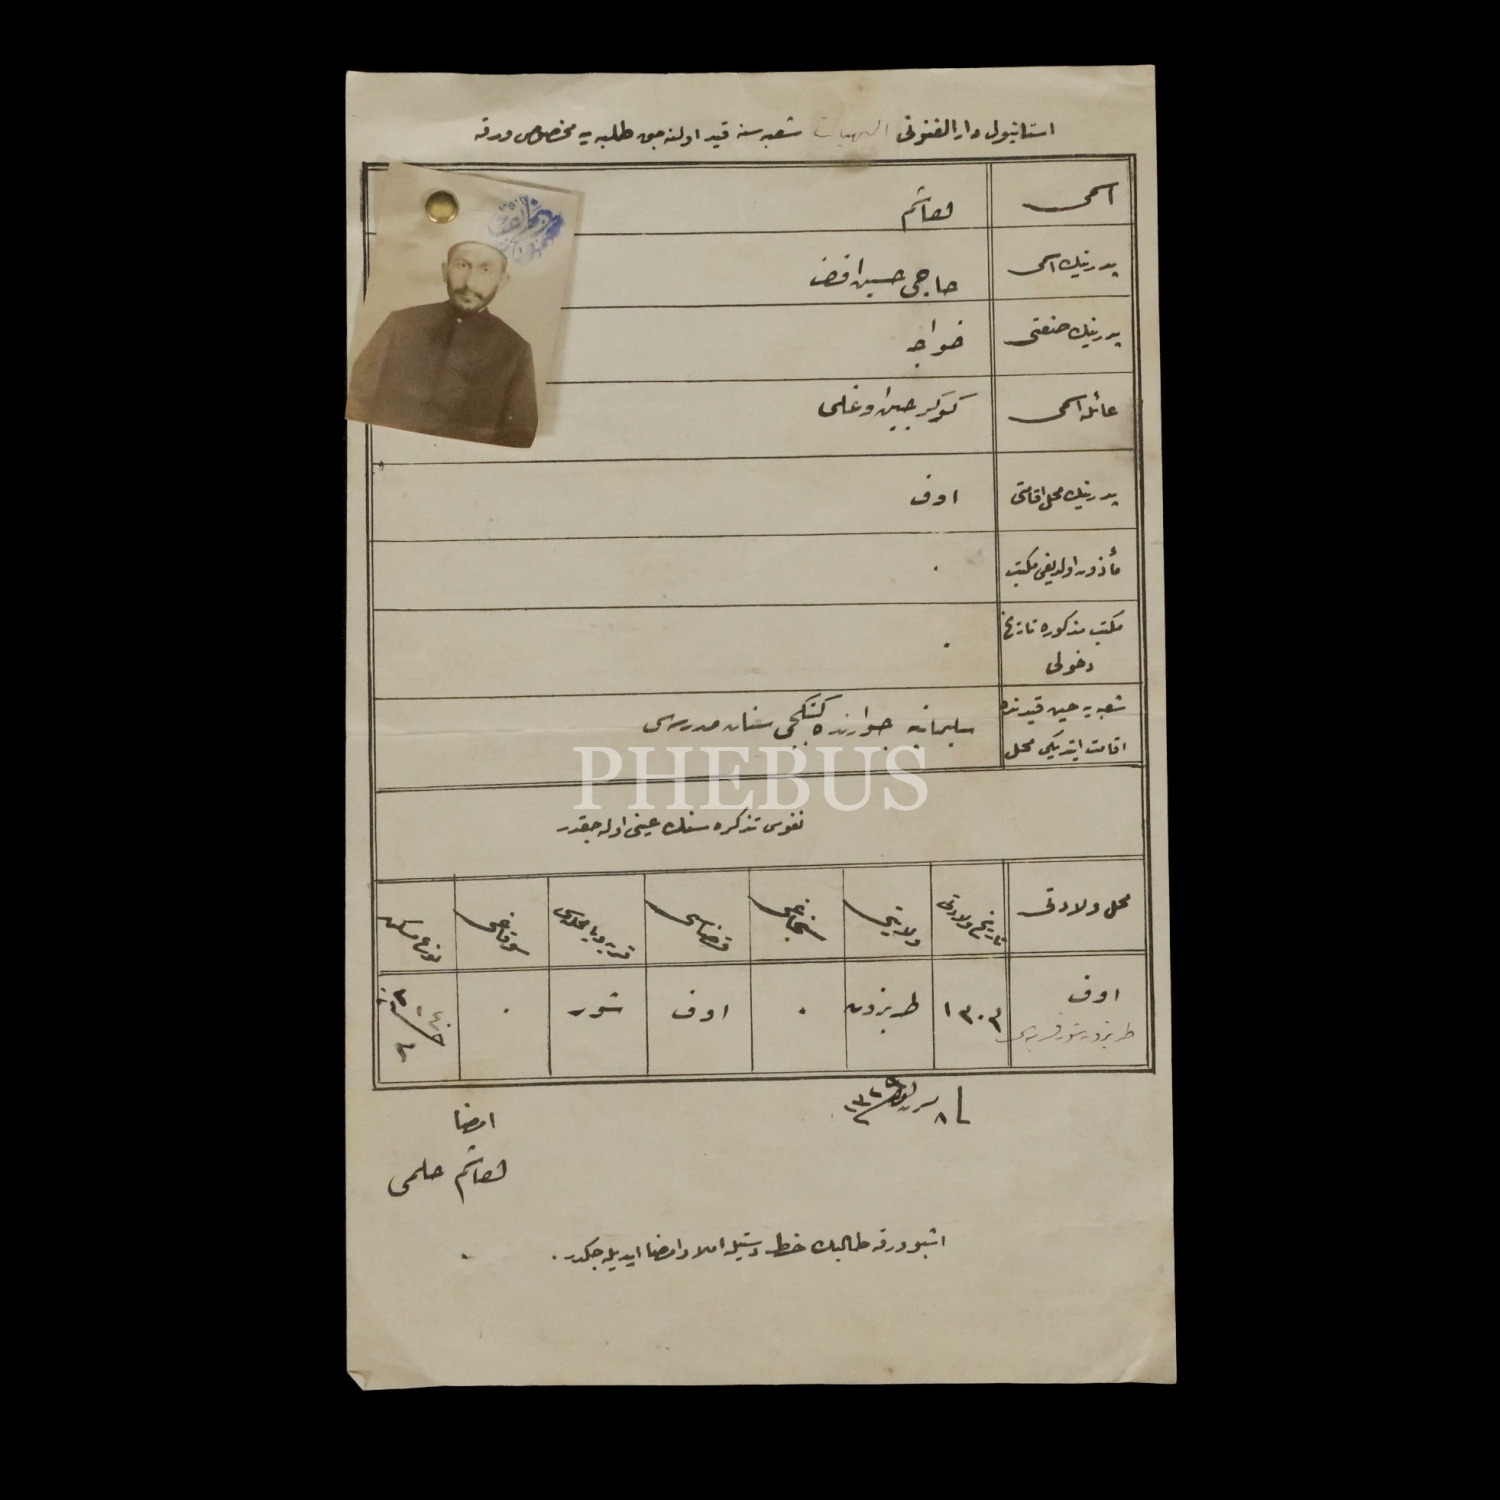 استانبول دار الفنونی الهیات شعبه سنه قید اولنه جق طلبه یه مخصوص ورقه
اسمی
هاشم
پدرینك اسمی
حاجی حسین افندی
پدرینك صنعتی
خواجه
عائله اسمی
كوكرجین اوغلی
پدرینك محل اقامتی
اوف
مأذون اولدیغی مكتب
مكتب مذكوره تاریخ
دخولی
شعبه یه حین قیدنده
اقامت ایتدیكی محل
سلیمانیه جوارنده سنان مدرسه سی
PHEBUS
نفوس تذكره سنك عینی اوله جقدر
محل ولادتی
تاریخ ولادتی
ولایتی
سنجاغی
قضاسی
قریه ویا محله سی
سوقاغی
نوع مسكن
اوف
طربزون شور قریه سی
١٣٠٣
طربزون
اوف
شور
٨
امضا
هاشم حلمی
اشبو ورقه طالبك خط دستیله املا و امضا ایدیله جكدر.